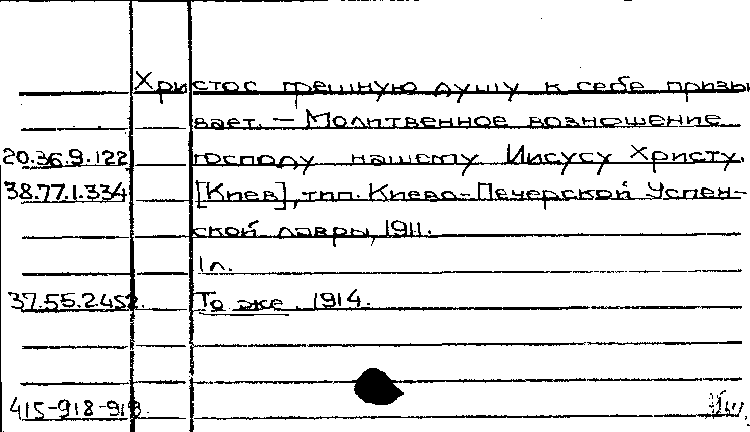 Христос грешную душу к себе призы
вает. — Молитвенное возношение
20.36.9.122 господу нашему Иисусу Христу.
38.77.1.334 [Киев], тип. Киево-Печерской Успен-
ской лавры, 1911.
1л.
37.55.2452. То же. 1914.
415-918-919